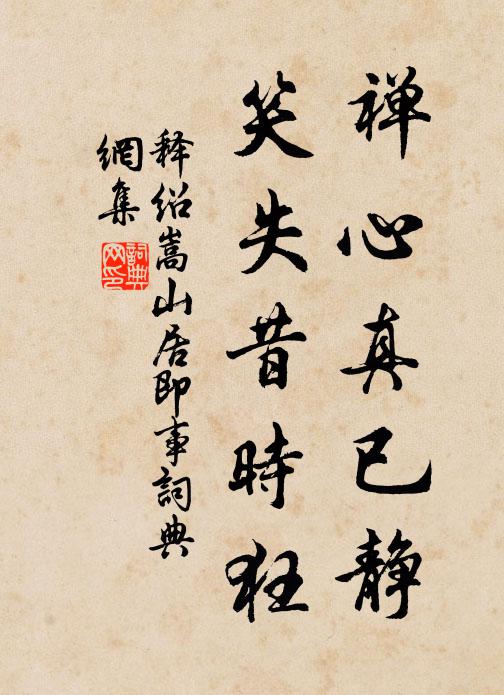 禅心真已静
笑失昔時狂
释绍嵩山居即事詞典
網集
詞典网印